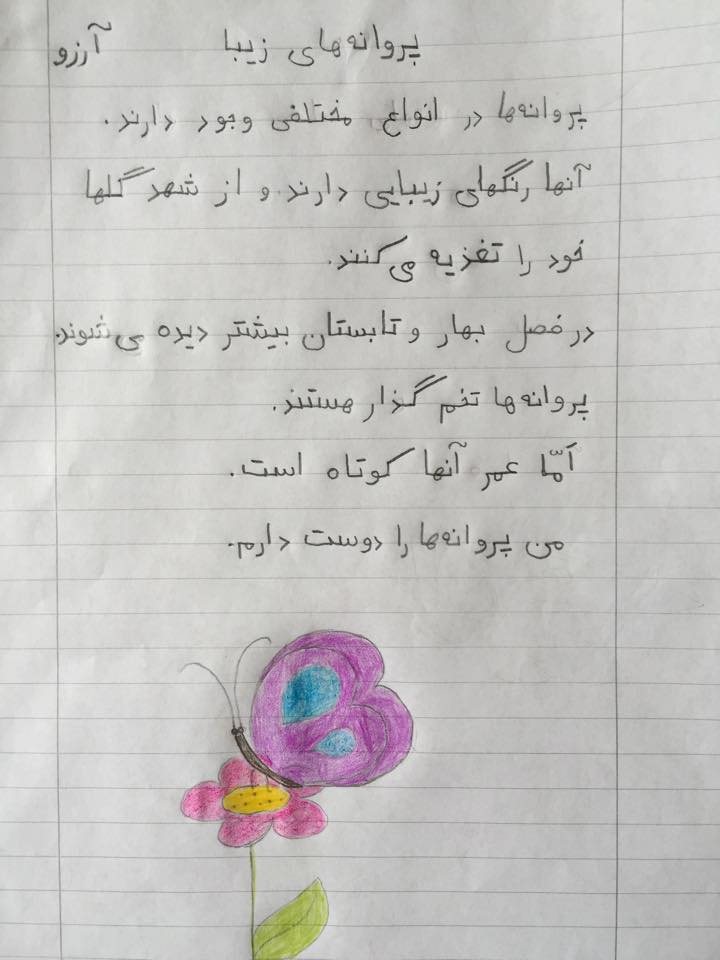 پروانه‌های زیبا آرزو
پروانه‌ها در انواع مختلفی وجود دارند.
آنها رنگهای زیبایی دارند و از شهد گلها
خود را تغزیه می‌کنند.
در فصل بهار و تابستان بیشتر دیده می‌شوند.
پروانه‌ها تخم گذار هستند.
اَمّا عمر آنها کوتاه است.
من پروانه‌ها را دوست دارم.